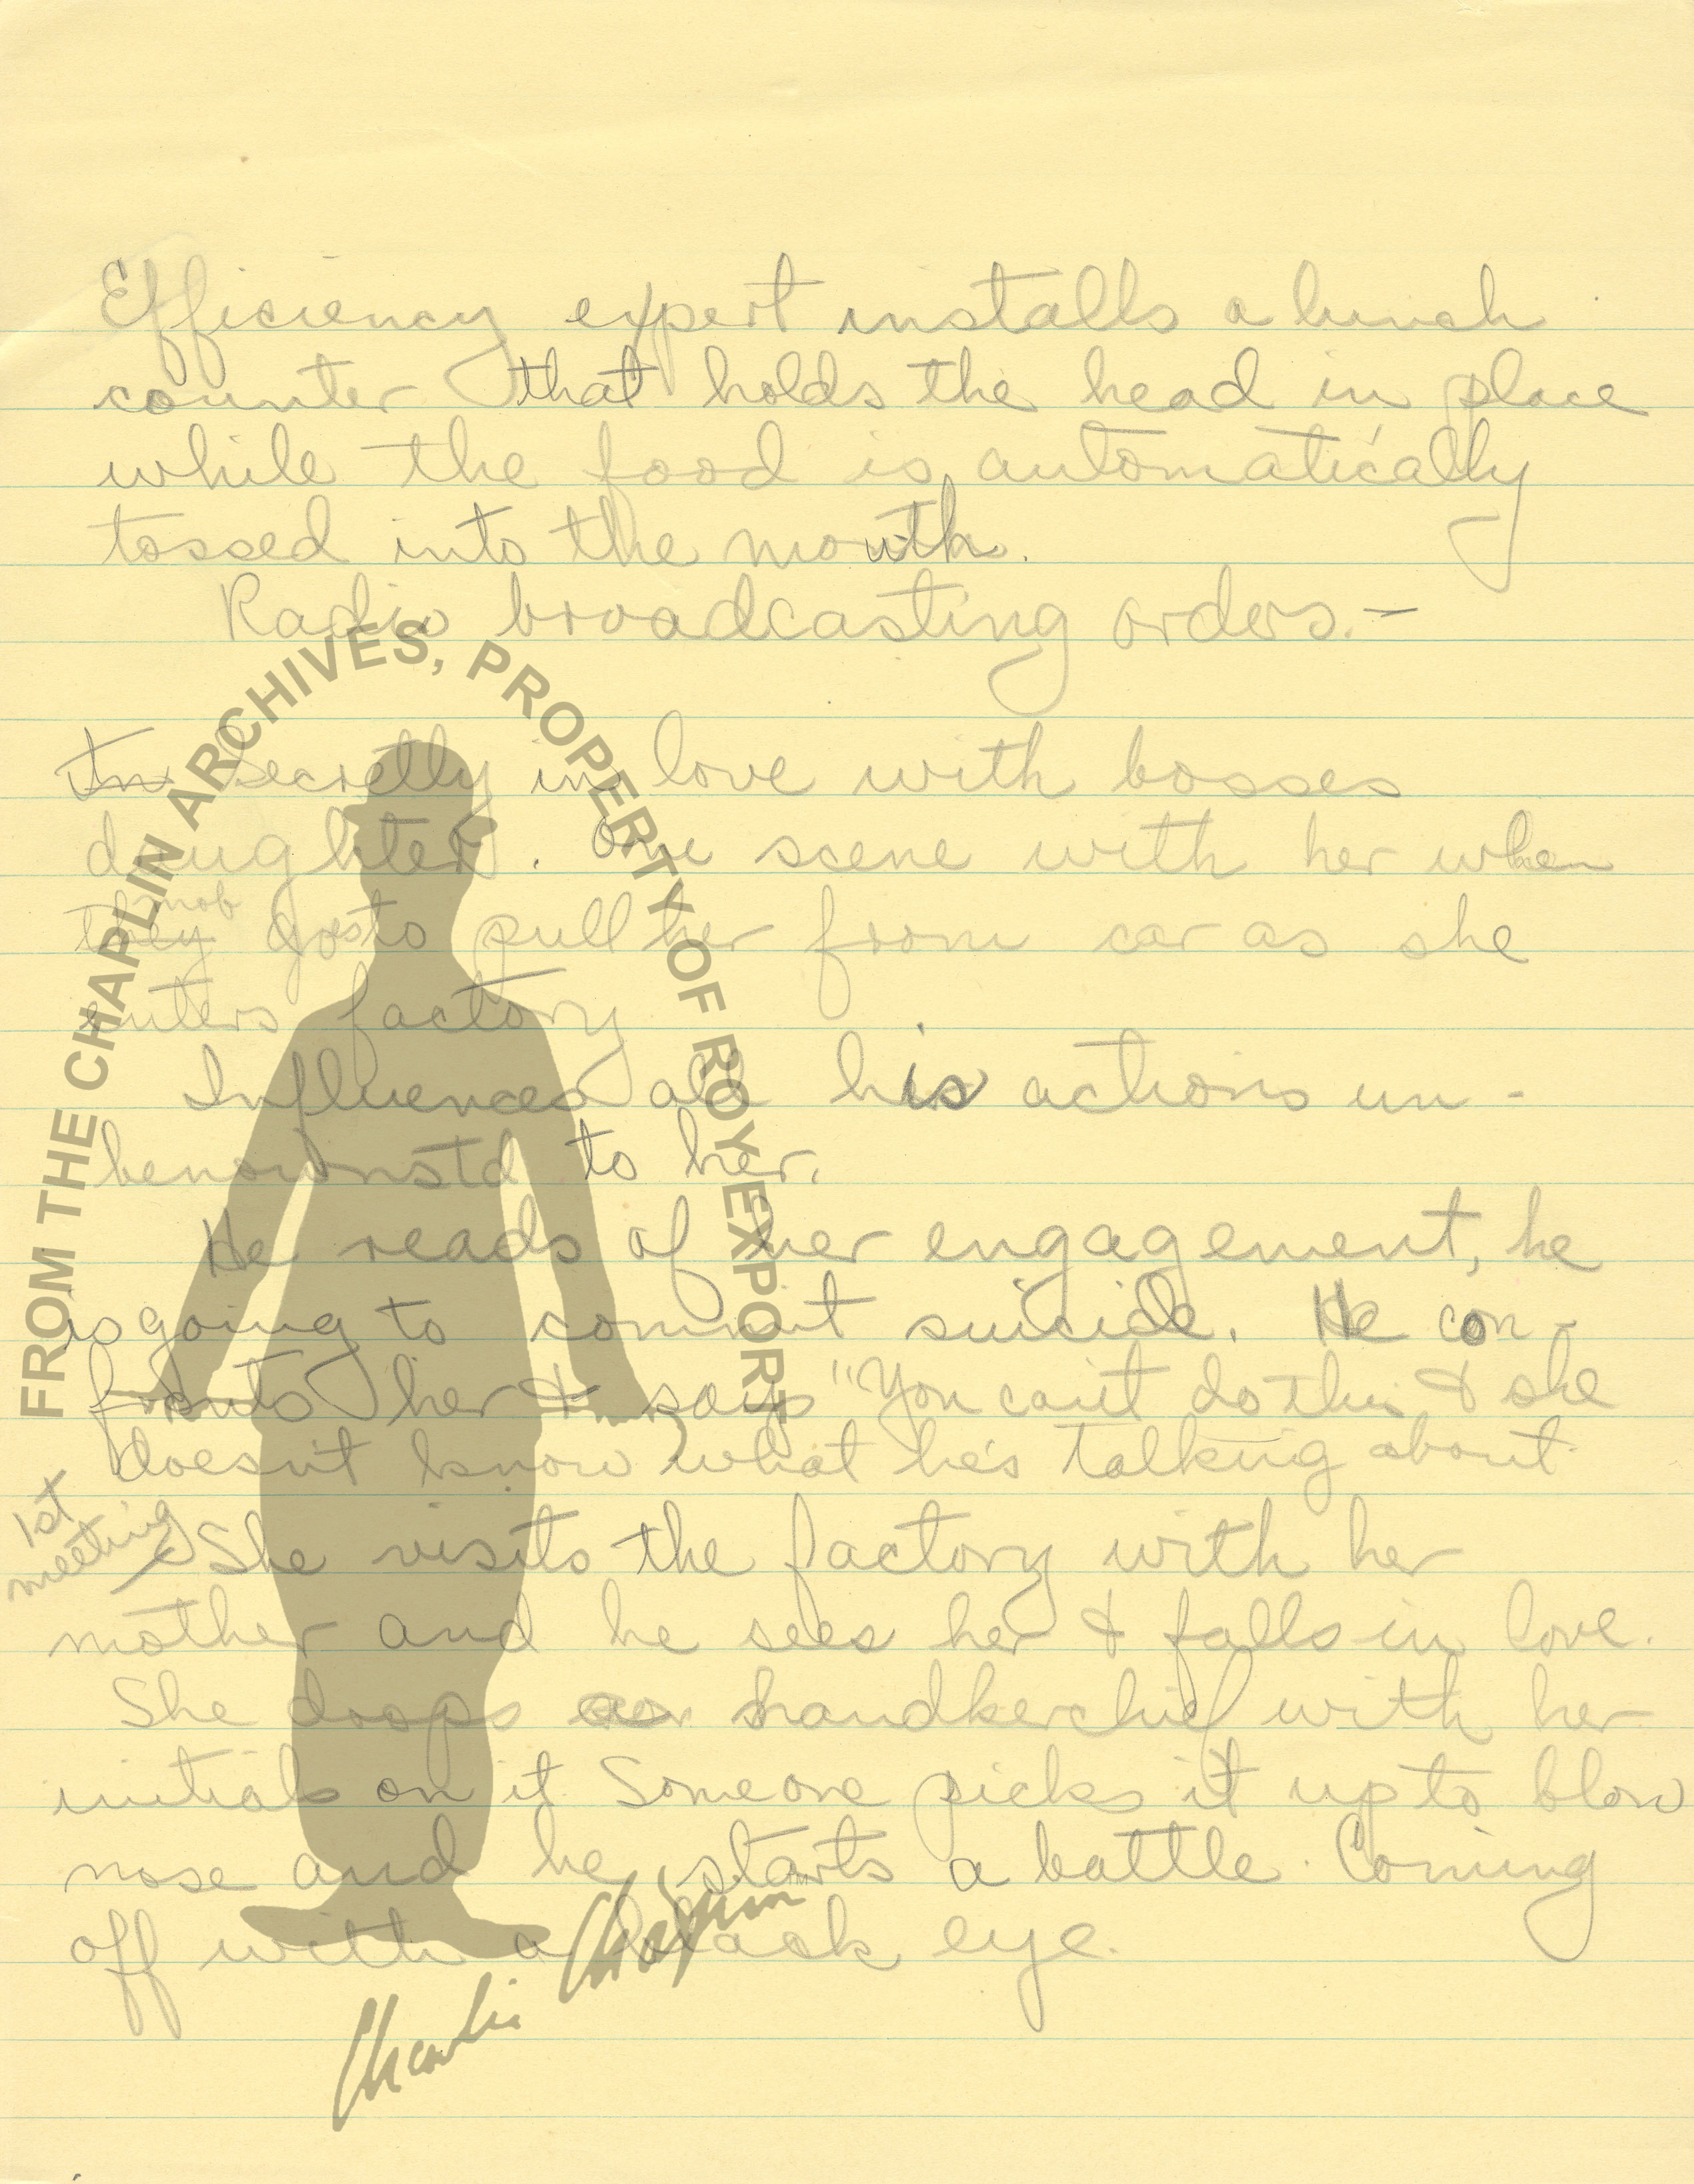 Efficiency expert installs a lunch
counter that holds the head in place
while the food is automatically
tossed into the mouth.
Radio broadcasting orders.-
In Secretly in love with bosses
daughter. One scene with her when
mob
they goes to pull her from car as she
enters factory
Influences all his actions un-
benownstd to her.
He reads of her engagement, he
is going to commit suicide. He con-
fronts her & says "You can't do this & she
doesn't know what he's talking about
1st
meeting
She visits the factory with her
mother and he sees her & falls in love.
She drops handkerchief with her
initials on it. Someone picks it up to blow
nose and he starts a battle. Coming
off with a black eye.
FROM THE CHAPLIN ARCHIVES, PROPERTY OF ROY EXPORT
Charlie Chaplin